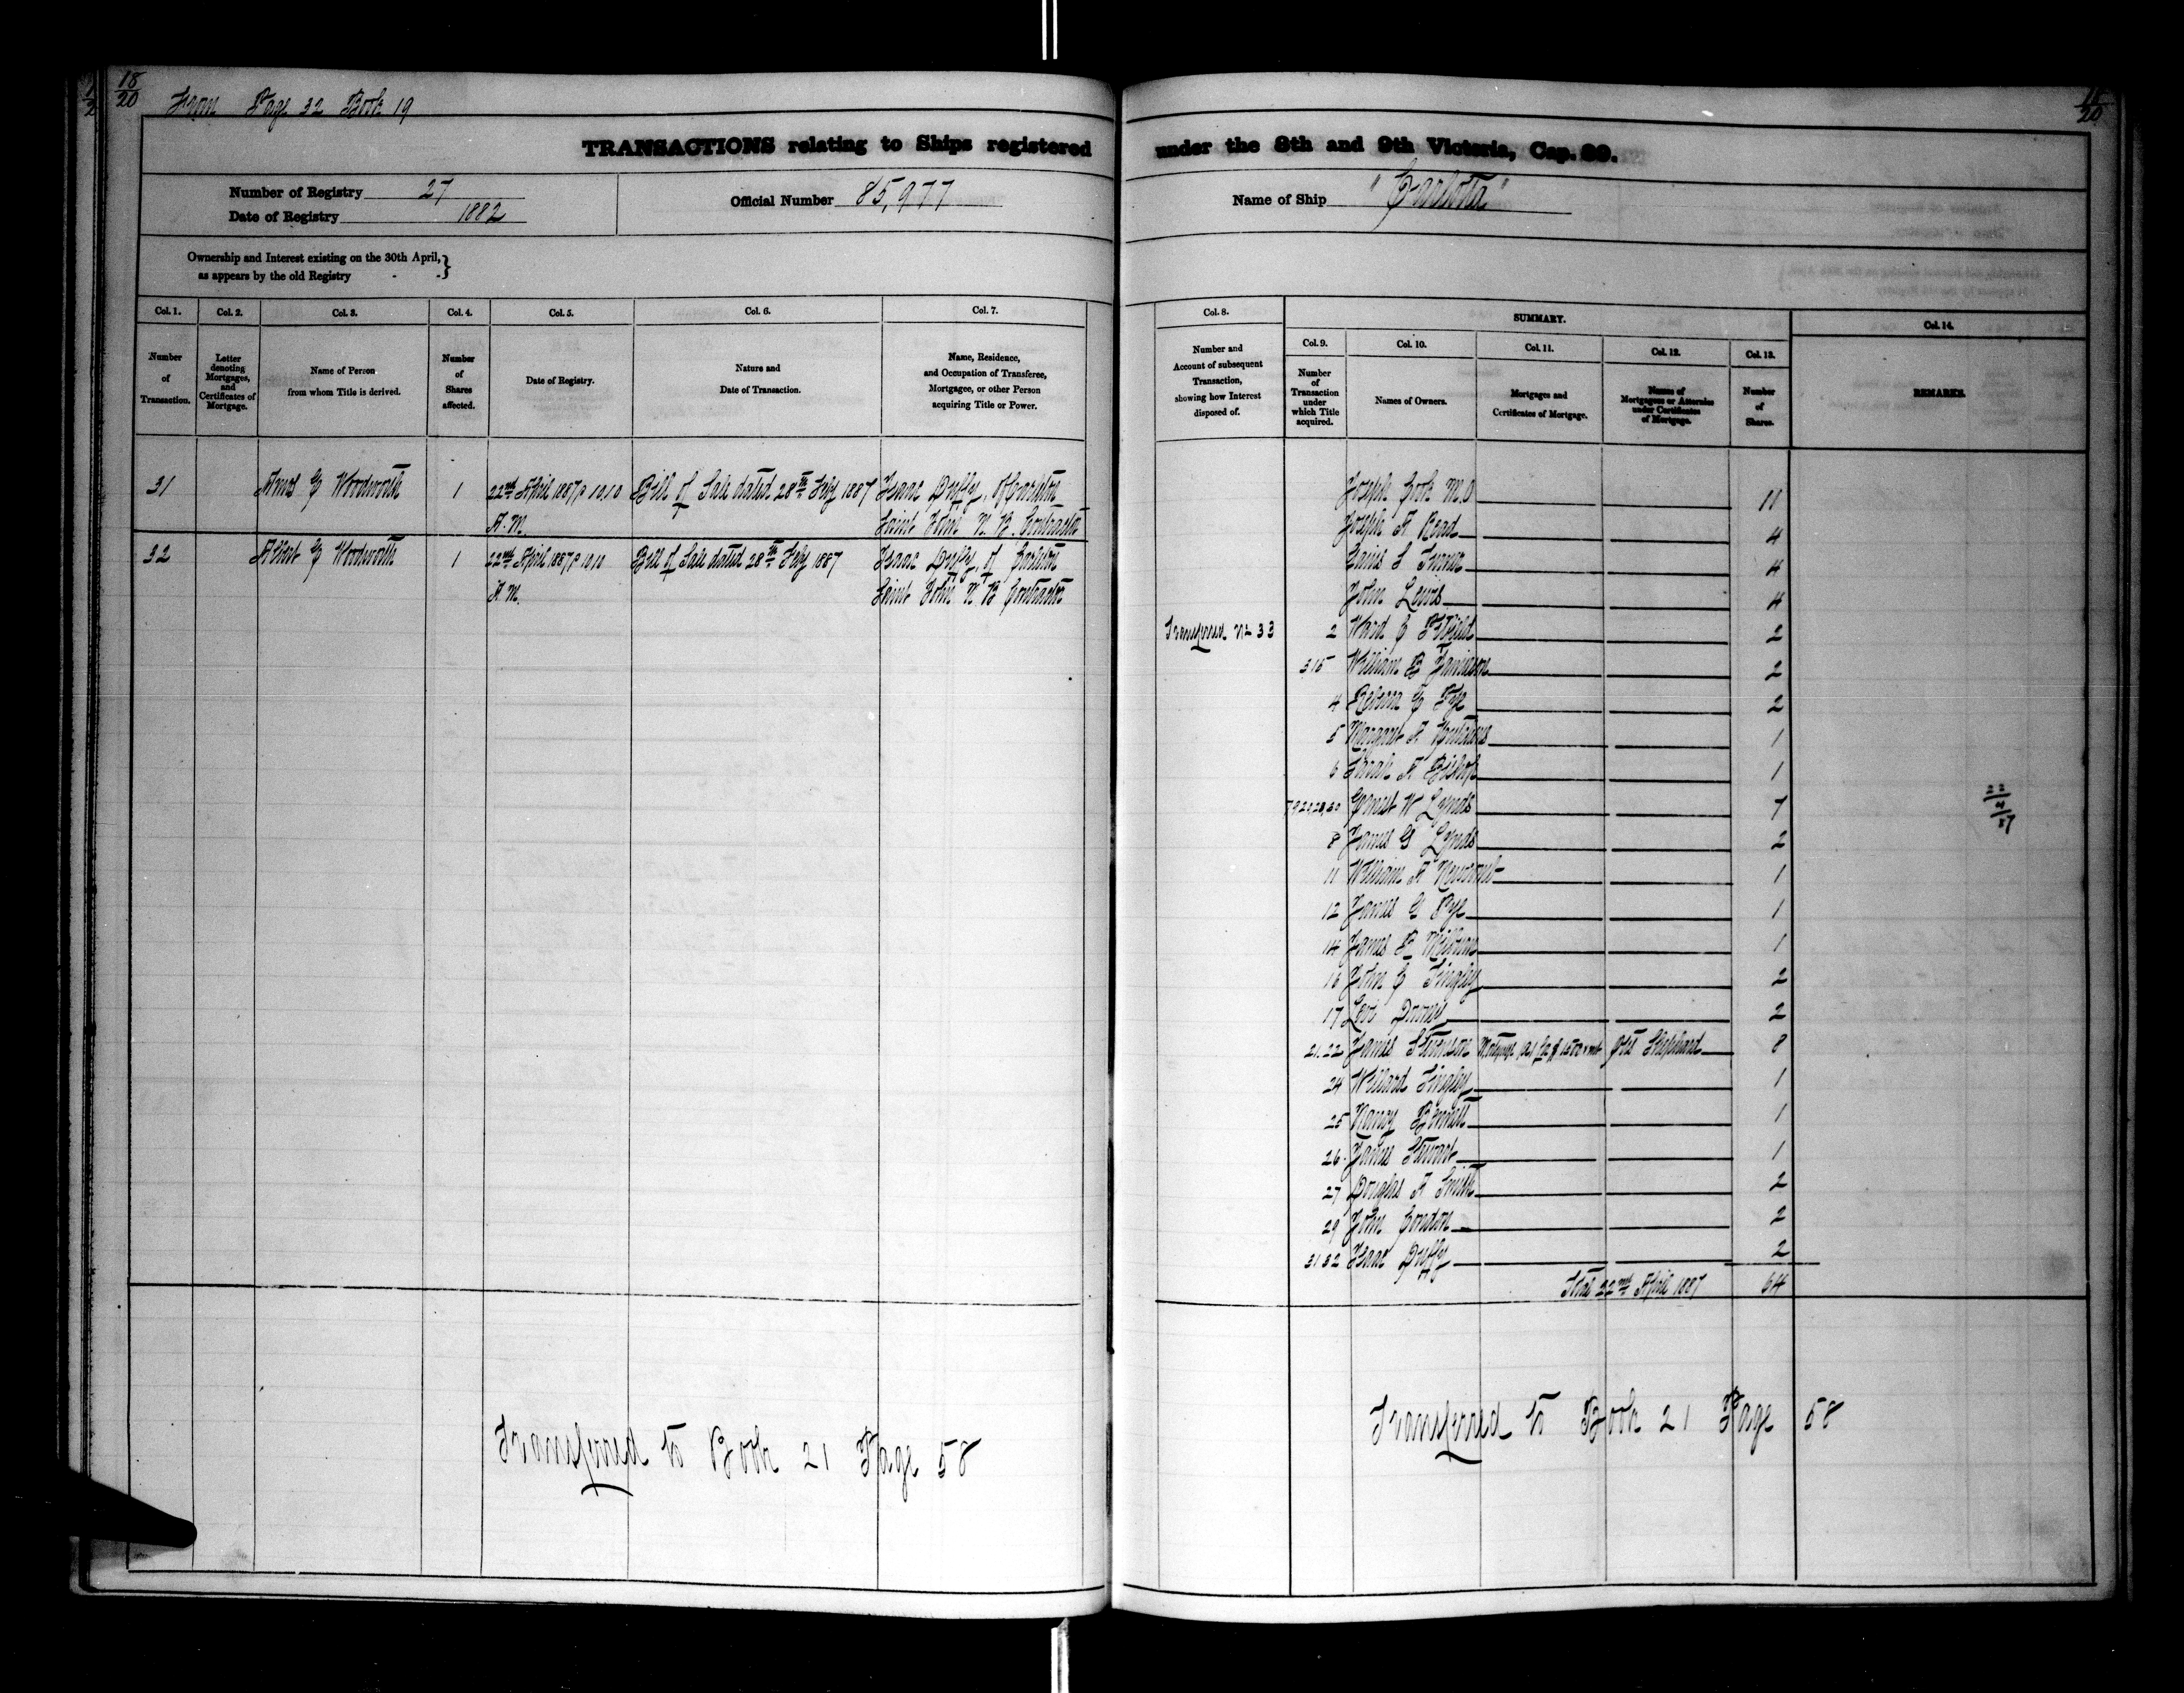 18/20
From Page 32 Book 19
18/20
TRANSACTIONS relating to Ships registered under the 8th and 9th Victoria, Cap. 89.
Number of Registry 27
Date of Registry 1882
Official Number 85,977
Name of Ship "Carlotta"
Ownership and Interest existing on the 30th April,
as appears by the old Registry
Col. 1. Col. 2. Col. 3. Col. 4. Col. 5. Col. 6. Col. 7.
Number of Transaction.
Letter denoting Mortgages, and Certificates of Mortgage.
Name of Person from whom Title is derived.
Number of Shares affected.
Date of Registry.
Nature and Date of Transaction.
Name, Residence, and Occupation of Transferee, Mortgagee, or other Person acquiring Title or Power.
31 Amos G Woodworth 1 22nd April 1887 10.10 Bill of Sale dated 28th Feby 1887 Isaac Duffy, of Carleton
A.M. Saint John N.B. Contractor
32 Albert G Woodworth 1 22nd April 1887 10.10 Bill of Sale dated 28th Feby 1887 Isaac Duffy, of Carleton
A.M. Saint John N B Contractor
Transferred to Book 21 Page 58
Col. 8. SUMMARY. Col. 14.
Col. 9. Col. 10. Col. 11. Col. 12. Col. 13.
Number and Account of subsequent Transaction, showing how Interest disposed of.
Number of Transaction under which Title acquired.
Names of Owners.
Mortgages and Certificates of Mortgage.
Names of Mortgagees or Attornies under Certificates of Mortgage.
Number of Shares.
REMARKS.
Joseph Cook M.D 11
Joseph A Read 4
Turner 4
John Lewis 4
Transferred No 33 2 Ward C 2
3.15 William B Jamieson 2
4 Rebecca 2
5 Margaret A 1
6 Sarah A Bishop 1
Ernest W Lynds 7
22/4/87
8 James G Lynds 2
11 William A Newcomb 1
12 James G Pye 1
14 James 1
16 John C Tingley 2
17 Levi Downie 2
21.22 James Stevenson Mortgage Shephard 8
24 Willard Tingley 1
25 Nancy Bennett 1
26 James Stewart 1
27 Douglas A Smith 2
29 John Condon 2
31 32 Isaac Duffy 2
Total 22nd April 1887 64
Transferred to Book 21 Page 58